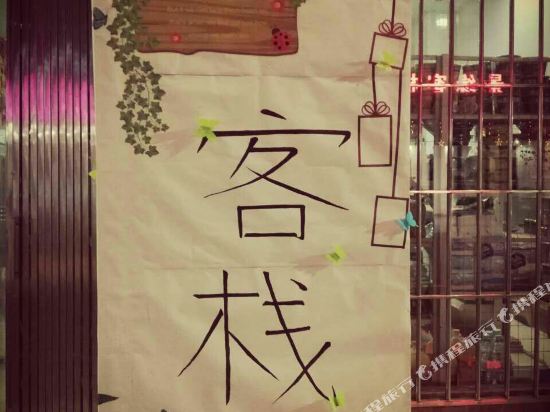 客
栈
携程旅行
携程旅行